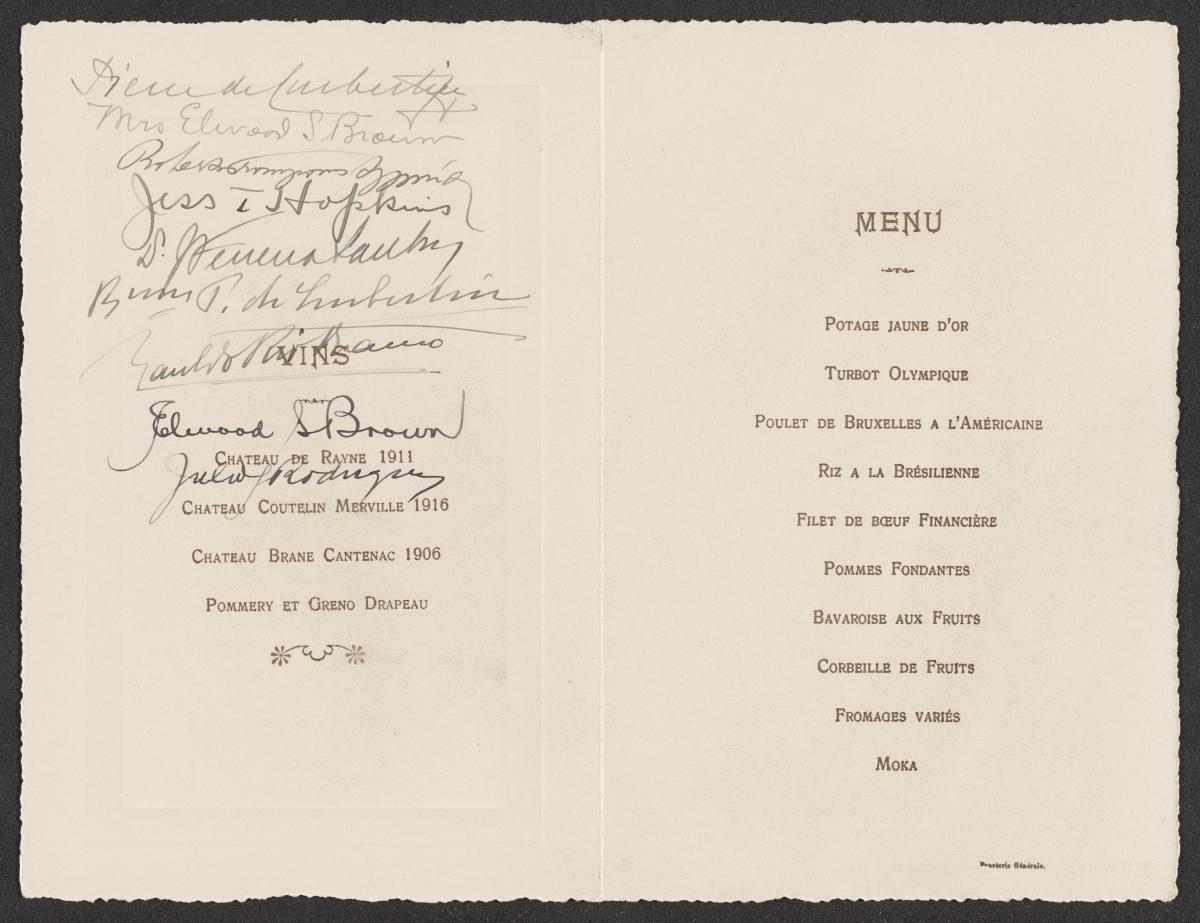 Pierre de Coubertin
Mrs Elwood S Brown
Jess T Hopkins
Dr
P. de Coubertin
VINS
Elwood S Brown
CHATEAU DE RAYNE 1911
CHATEAU COUTELIN MERVILLE 1916
CHATEAU BRANE CANTENAC 1906
POMMERY ET GRENO DRAPEAU
MENU
POTAGE JAUNE D'OR
TURBOT OLYMPIQUE
POULET DE BRUXELLES A L'AMÉRICAINE
RIZ A LA BRÉSILIENNE
FILET DE BŒUF FINANCIÈRE
POMMES FONDANTES
BAVAROISE AUX FRUITS
CORBEILLE DE FRUITS
FROMAGES VARIÉS
MOKA
Générale.